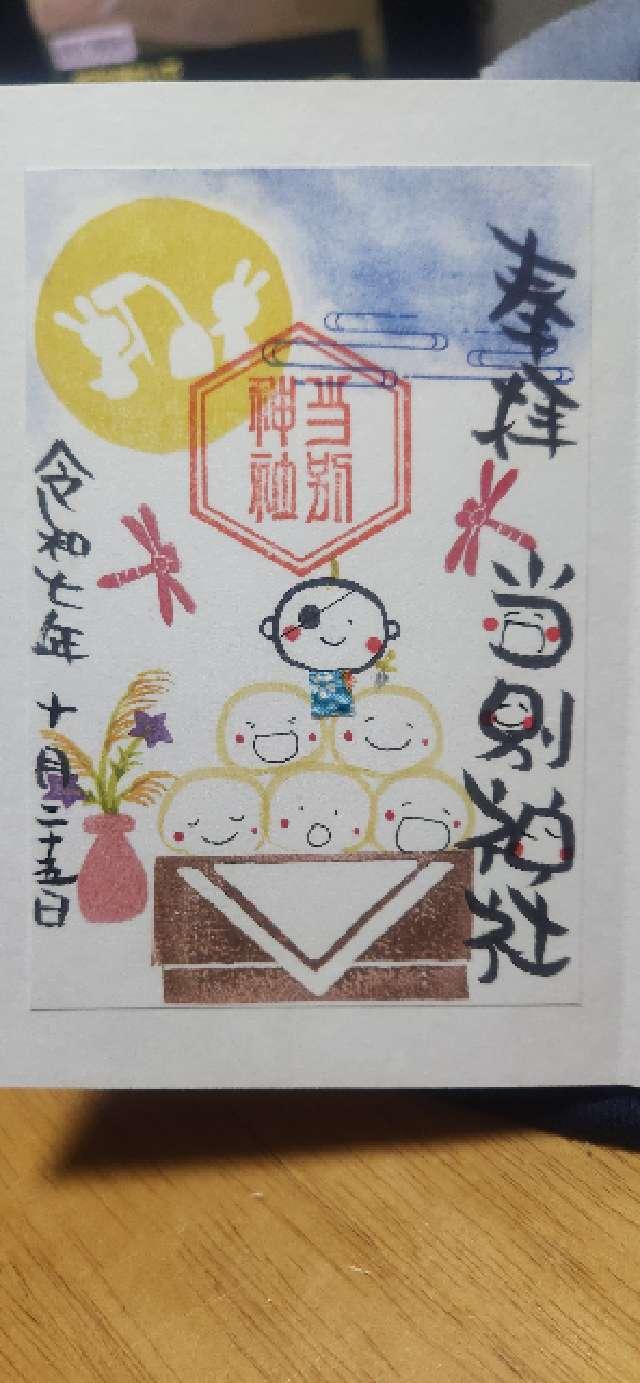 奉拝
当別神社
当別
神社
令和七年 十月二十五日